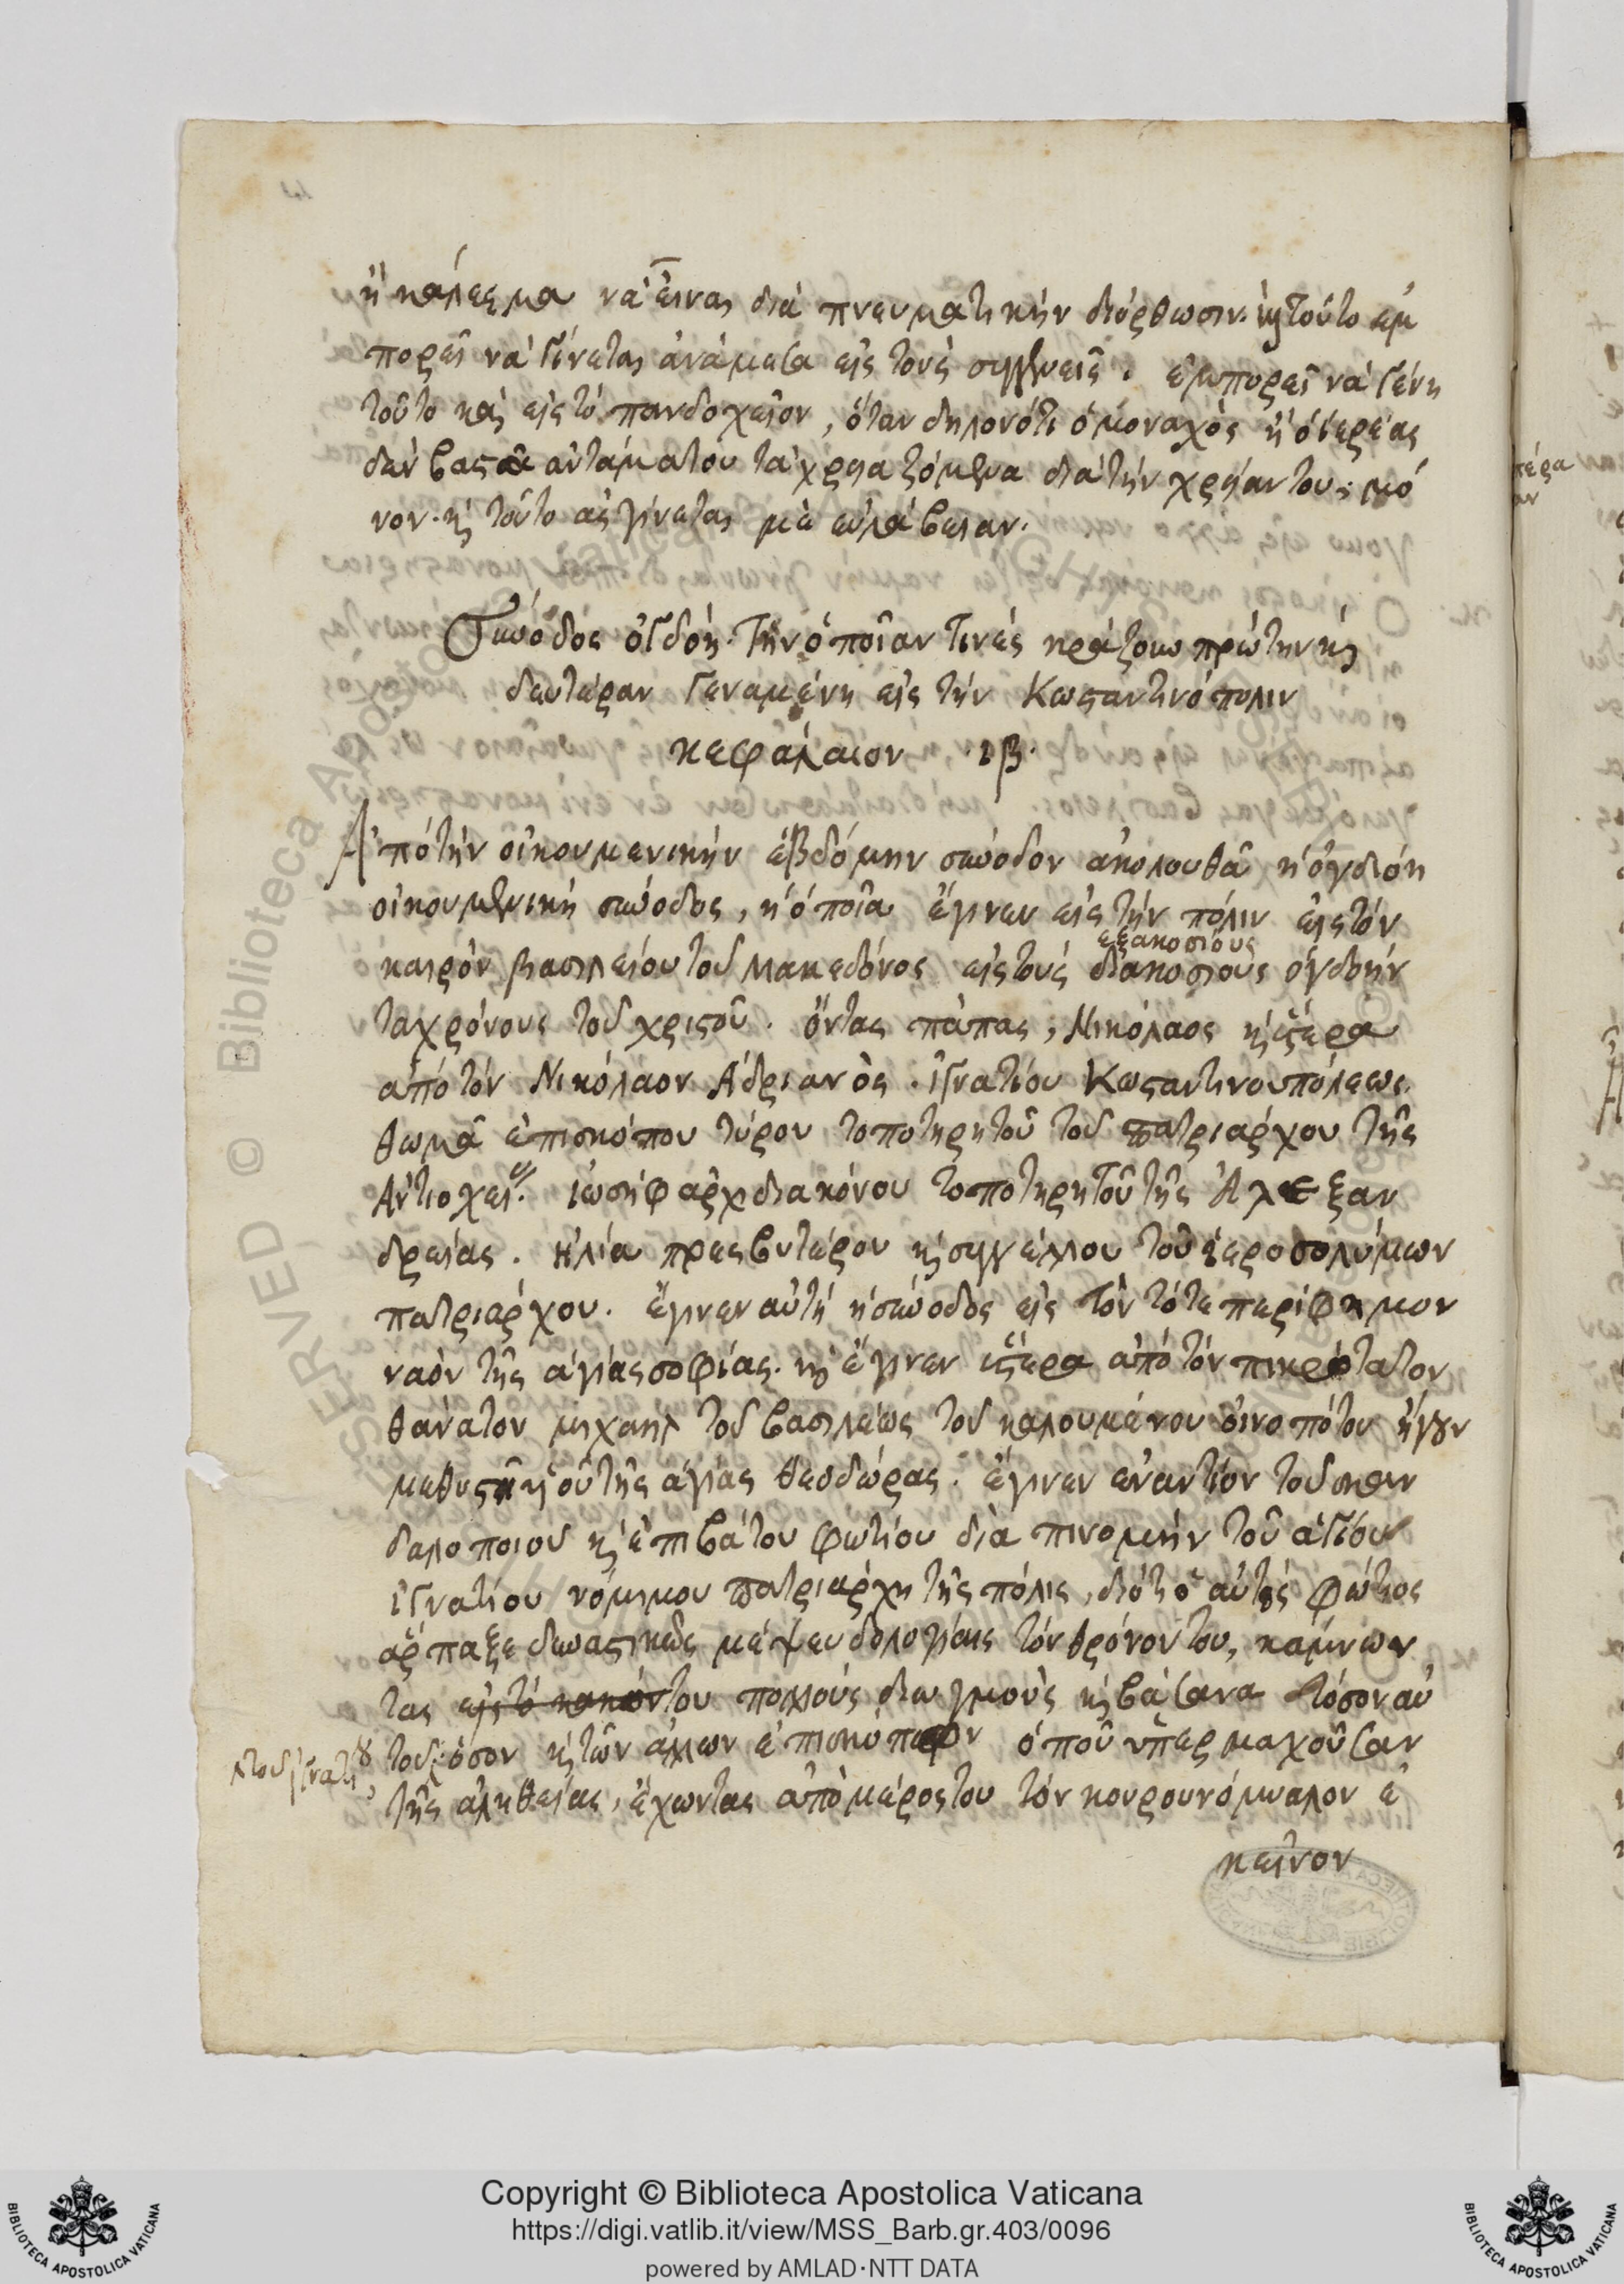 ἢ κάλεσμα νὰ εἶναι διὰ πνευματικὴν διόρθωσιν. καὶ τοῦτο ἐμ
πορεῖ νὰ γίνεται ἀνάμεσα εἰς τοὺς συγγενεῖς. ἐμπορεῖ νὰ γένη
τοῦτο καὶ εἰς τὸ πανδοχεῖον, ὅταν δηλονότι ὁ μοναχὸς ἢ ὁ ἱερέας
δὲν βαστᾶ ἀντάματου τὰ χρειαζόμενα διὰ τὴν χρείαν τους μό
νον. καὶ τοῦτο ἂς γίνεται μὲ εὐλάβειαν.
Σύνοδος ὀγδόη. Τὴν ὁποῖαν τινὲς κράζουν πρώτην καὶ
δευτέραν γεναμένη εἰς τὴν Κωσταντινόπολιν
κεφάλαιον ·ιβ·
Ἀπὸ τὴν οἰκουμενικὴν ἑβδόμην σύνοδον ἀκολουθᾶ ἡ ὀγδιόη
οἰκουμενικὴ σύνοδος, ἡ ὁποῖα ἔγινεν εἰς τὴν πόλιν εἰς τὸν
ἑξακοσίους
καιρὸν βασιλείου τοῦ Μακεδόνος εἰς τοὺς διακοσιοὺς ὀγδοήν
τα χρόνους τοῦ χριστοῦ. ὄντας πάπας, Νικόλαος καὶ ὕστερα
ἀπὸ τὸν Νικόλαον Ἀδριανὸς. ἰγνατίου Κωσταντινουπόλεως.
θωμᾶ ἐπισκόπου τύρου τοποτηρητοῦ τοῦ πατριάρχου τῆς
Ἀντιοχείας. ἰωσὴφ ἀρχιδιακόνου τοποτηρητοῦ τῆς Ἀλεξαν
δρείας. ἠλία πρεσβυτέρου καὶ συγγέλλου τοῦ ἱεροσολύμων
πατριάρχου. ἔγινεν αὐτὴ ἡ σύνοδος εἰς τὸν τότε περίφημον
ναὸν τῆς ἁγίας σοφίας. καὶ ἔγινεν ὕστερα ἀπὸ τὸν πικρότατον
θάνατον μιχαὴλ τοῦ βασιλέως τοῦ καλουμένου οἰνοπότου ἤγουν
μεθυστῆ υἱοῦ τῆς ἁγίας θεοδώρας. ἔγινεν ἐναντίον τοῦ σκαν
δαλοποιοῦ καὶ ἐπιβάτου φωτίου διὰ πινομὴν τοῦ ἁγίου
ἰγνατίου νόμιμου πατριάρχη τῆς πόλις, διότι ὁ αὐτὸς φώτιος
ἅρπαξε δυναστικῶς μὲ ψευδολογίαις τὸν θρόνον του, κάμνων
τας εἰς τὸ κακόν του πολλοὺς διωγμοὺς καὶ βάσανα τόσον αὐ
τοῦ τοῦ ἰγνατίου, ὅσον καὶ τῶν ἄλλων ἐπισκόπων ὁποῦ ὑπερμαχοῦσαν
τῆς ἀληθείας, ἔχωντας ἀπὸ μέρος του τὸν κουρουνόμυαλον ἐ
κεῖνον
Copyright © Biblioteca Apostolica Vaticana
https://digi.vatlib.it/view/MSS_Barb.gr.403/0096
powered by AMLAD·NTT DATA